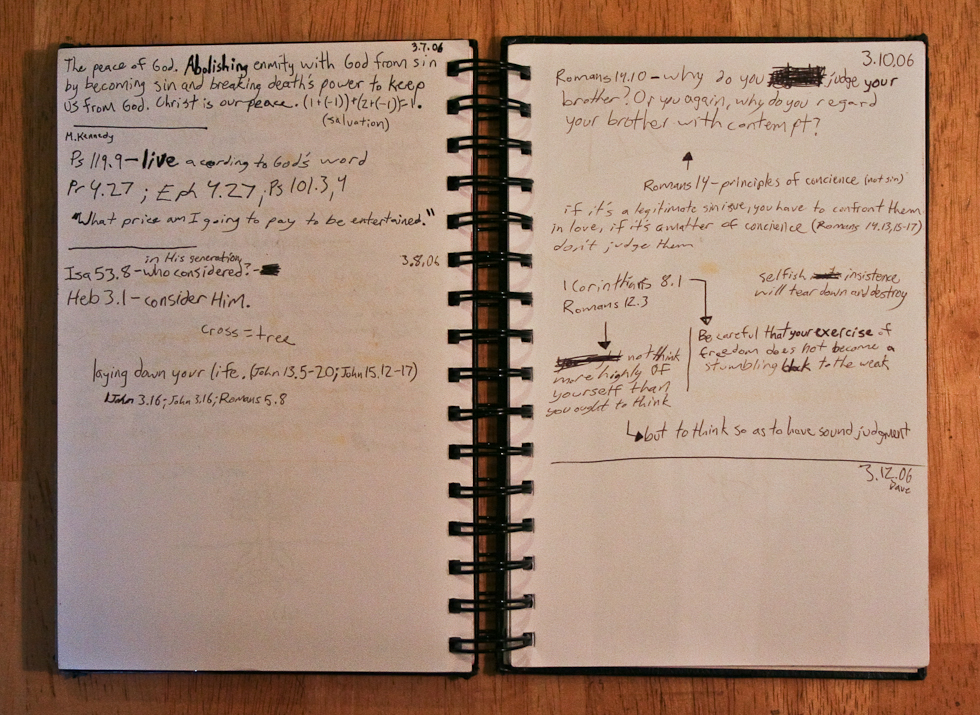 3.7.06
The peace of God. Abolishing enmity with God from sin
by becoming sin and breaking death's power to keep
us from God. Christ is our peace. (1+(-1))+(2+(-1))=1.
(salvation)
M. Kennedy
Ps 119.9-live acording to God's word
Pr 4.27; Eph 4.27; Ps 101.3,4
"What price am I going to pay to be entertained."
in His generation
3.8.06
Isa 53.8-who considered?-
Heb 3.1-consider Him.
cross=tree
laying down your life. (John 13.5-20; John 15.12-17)
1John 3.16; John 3.16; Romans 5.8
3.10.06
Romans 14.10-why do you judge your
brother? Or you again, why do you regard
your brother with contempt?
Romans 14-principles of concience (not sin)
if it's a legitimate sin issue, you have to confront them
in love, if it's a matter of concience (Romans 14.13,15-17)
don't judge them
1 Corinthians 8.1
Romans 12.3
selfish insistence
will tear down and destroy
Be careful that your exercise of
freedom does not become a
stumbling block to the weak
not think
more highly of
yourself than
you ought to think
but to think so as to have sound judgment
3.12.06
Dave